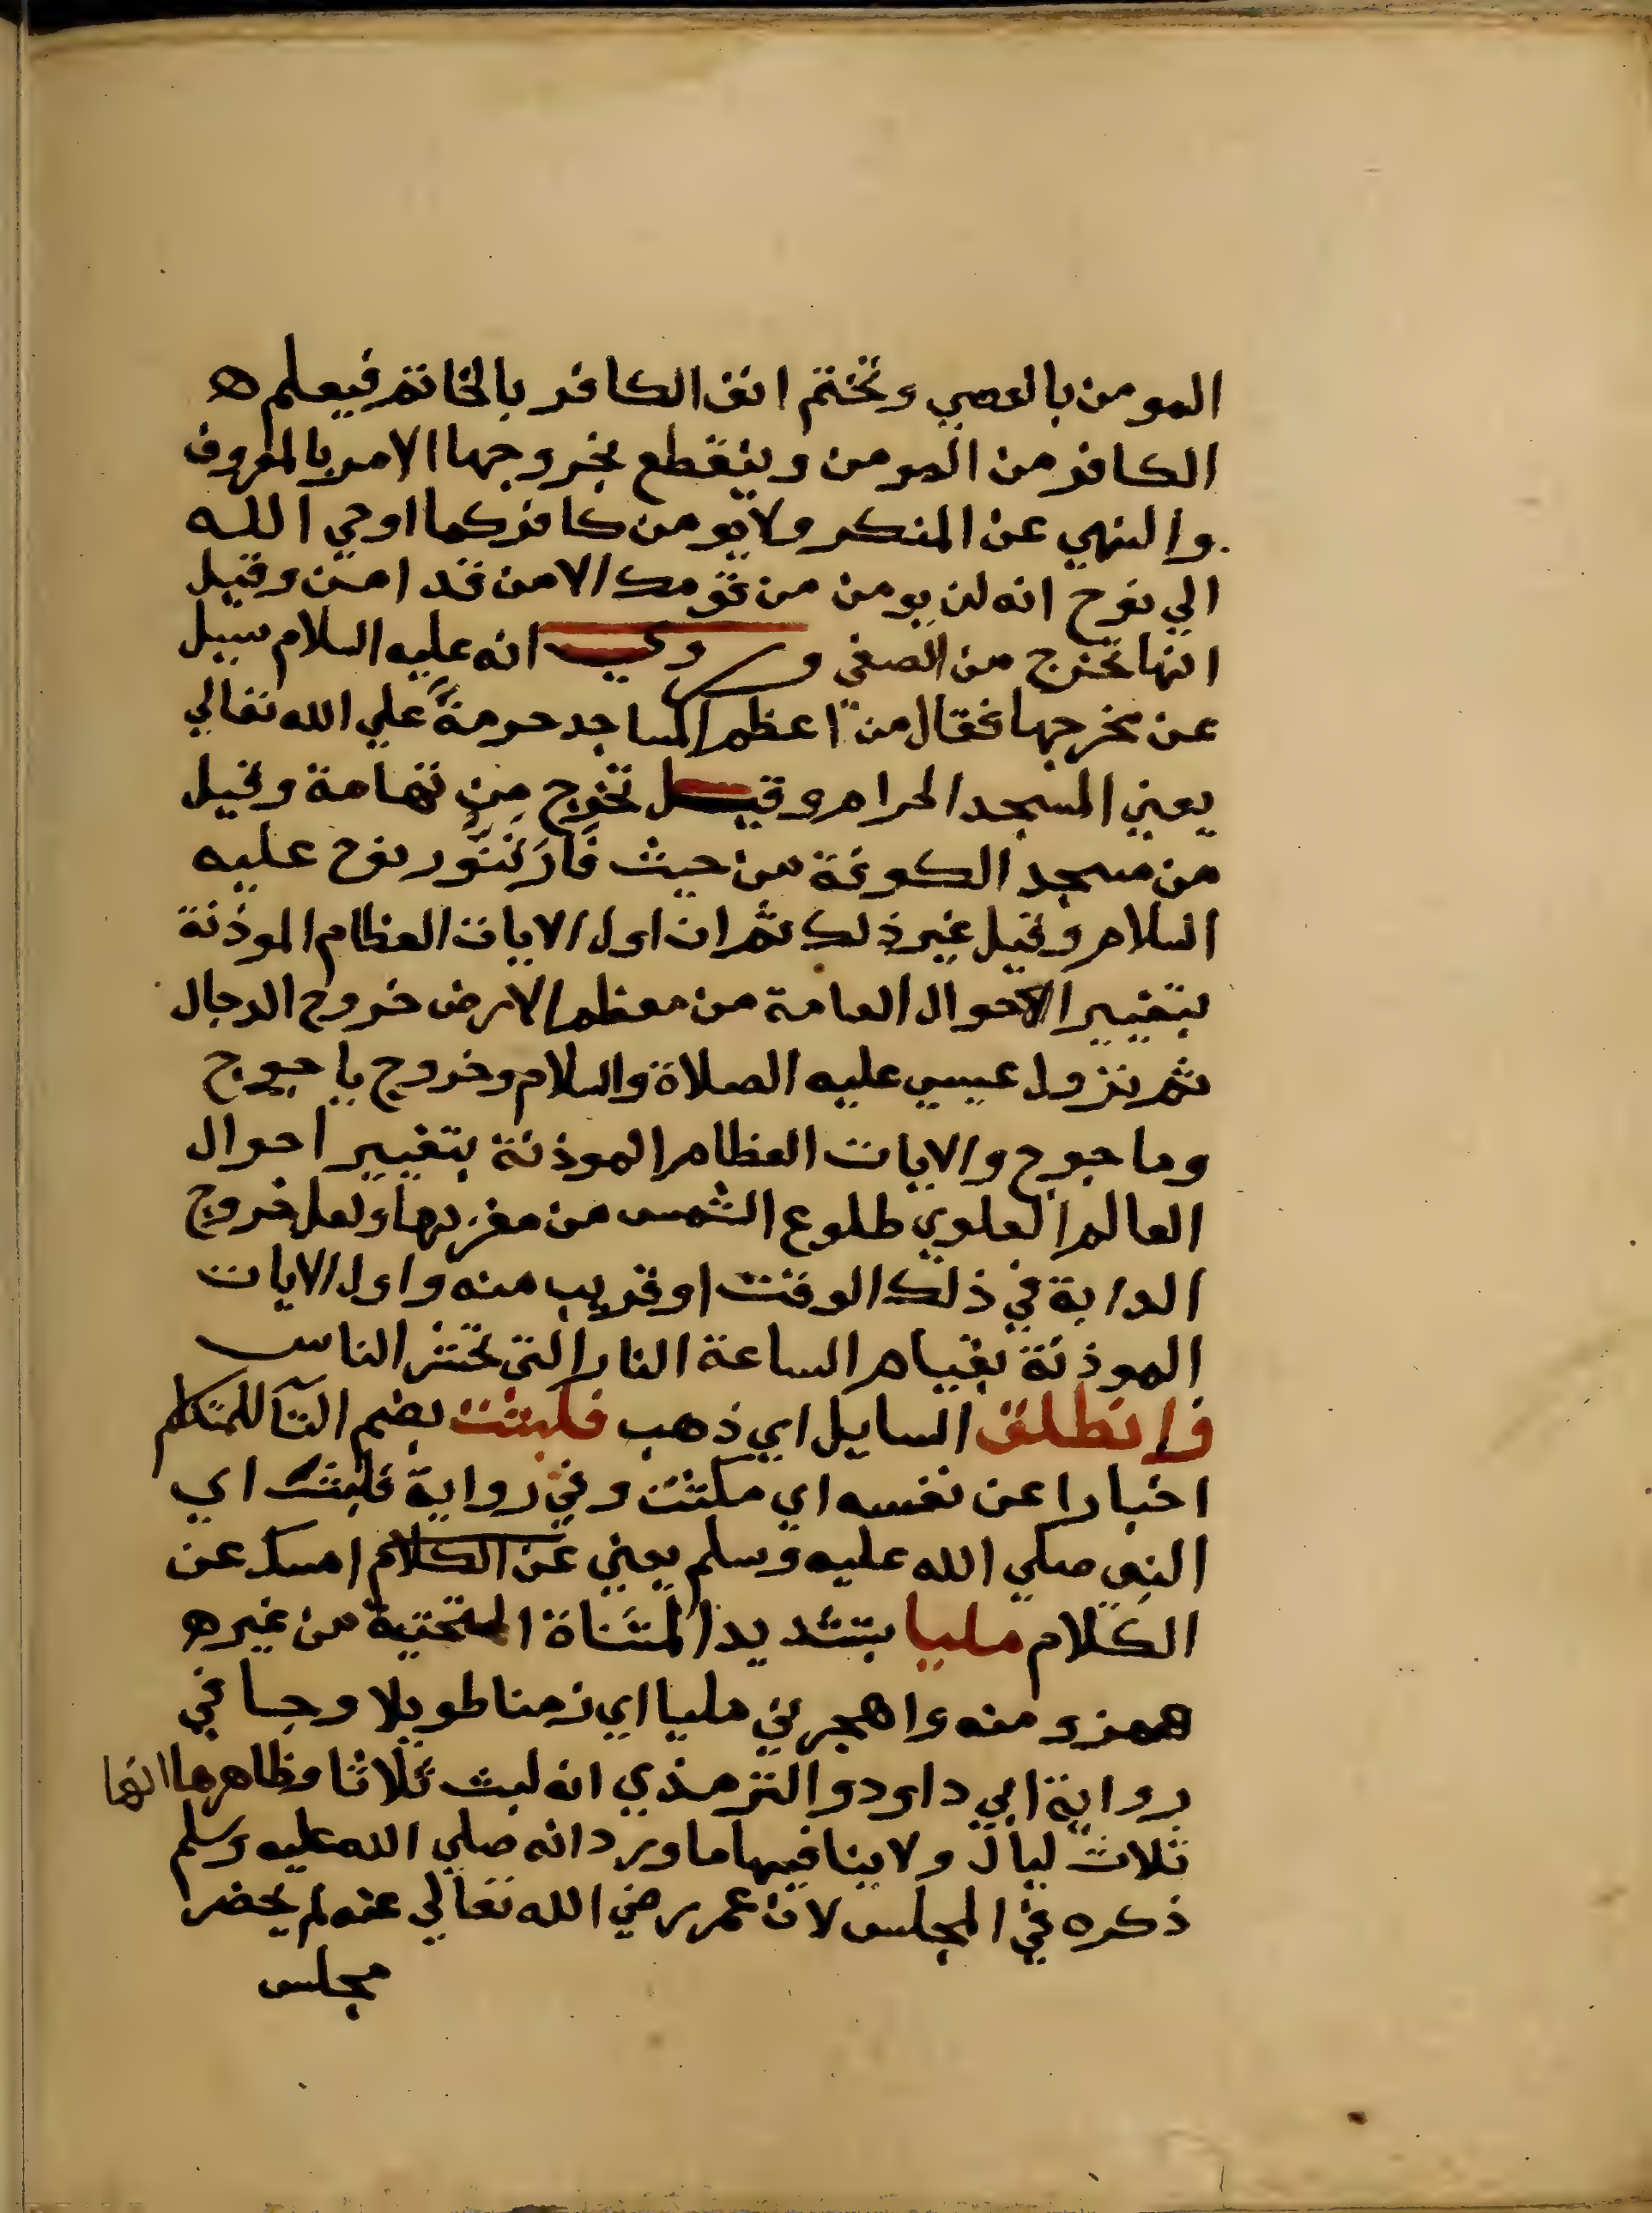 المومن بالعصي وتختم انف الكافر بالخاتم فيعلم ه
الكافر من المومن وينقطع بخروجها الامر بالمعروف
والنهي عن المنكر ولا يومن كافر كما اوحي الله
الي نوح انه لن يومن من قومك الا من قد امن وقيل
انها تخرج من الصفي وروي انه عليه السلام سييل
عن مخرجها فقال من اعظم المساجد حرمةً علي الله تعالي
يعني المسجد الحرام وقيل تخرج مِن تهامة وقيل
من مسجد الكوفة من حيث فَارَ تَنّور نوح عليه
السلام وقيل غير ذلك ثم ان اول الايات العظام الموذنة
بتغيير الاحوال العامة من معظم الارض خروج الدجال
ثم نزول عيسي عليه الصلاة والسلام وخروج ياجوج
وماجوج والايات العظام الموذنة بتغيير احوال
العالم العلوي طلوع الشمس من مغربها ولعل خروج
الدابة في ذلك الوقت او قريب منه واول الايات
الموذنة بقيام الساعة النار التي تحشر الناس
فانطلق السايل اي ذهب فلبثت بضم التآ للمتكلم
اخبارا عن نفسه اي مكثت وفي رواية فلبث اي
النبي صلي الله عليه وسلم يعني عن الكلام امسك عن
الكلام مليا بتشديد المثناة التحتية من غير ه
همز ومنه واهجرني مليا اي زمنا طويلا وجا في
رواية ابي داود والترمذي انه لبث ثلاثا وظاهرها انها
ثلاث ليال ولا ينافيها ما ورد انه صلي الله عليه وسلم
ذكره في المجلس لان عمر رضي الله تعالي عنه لم يحضر
مجلس